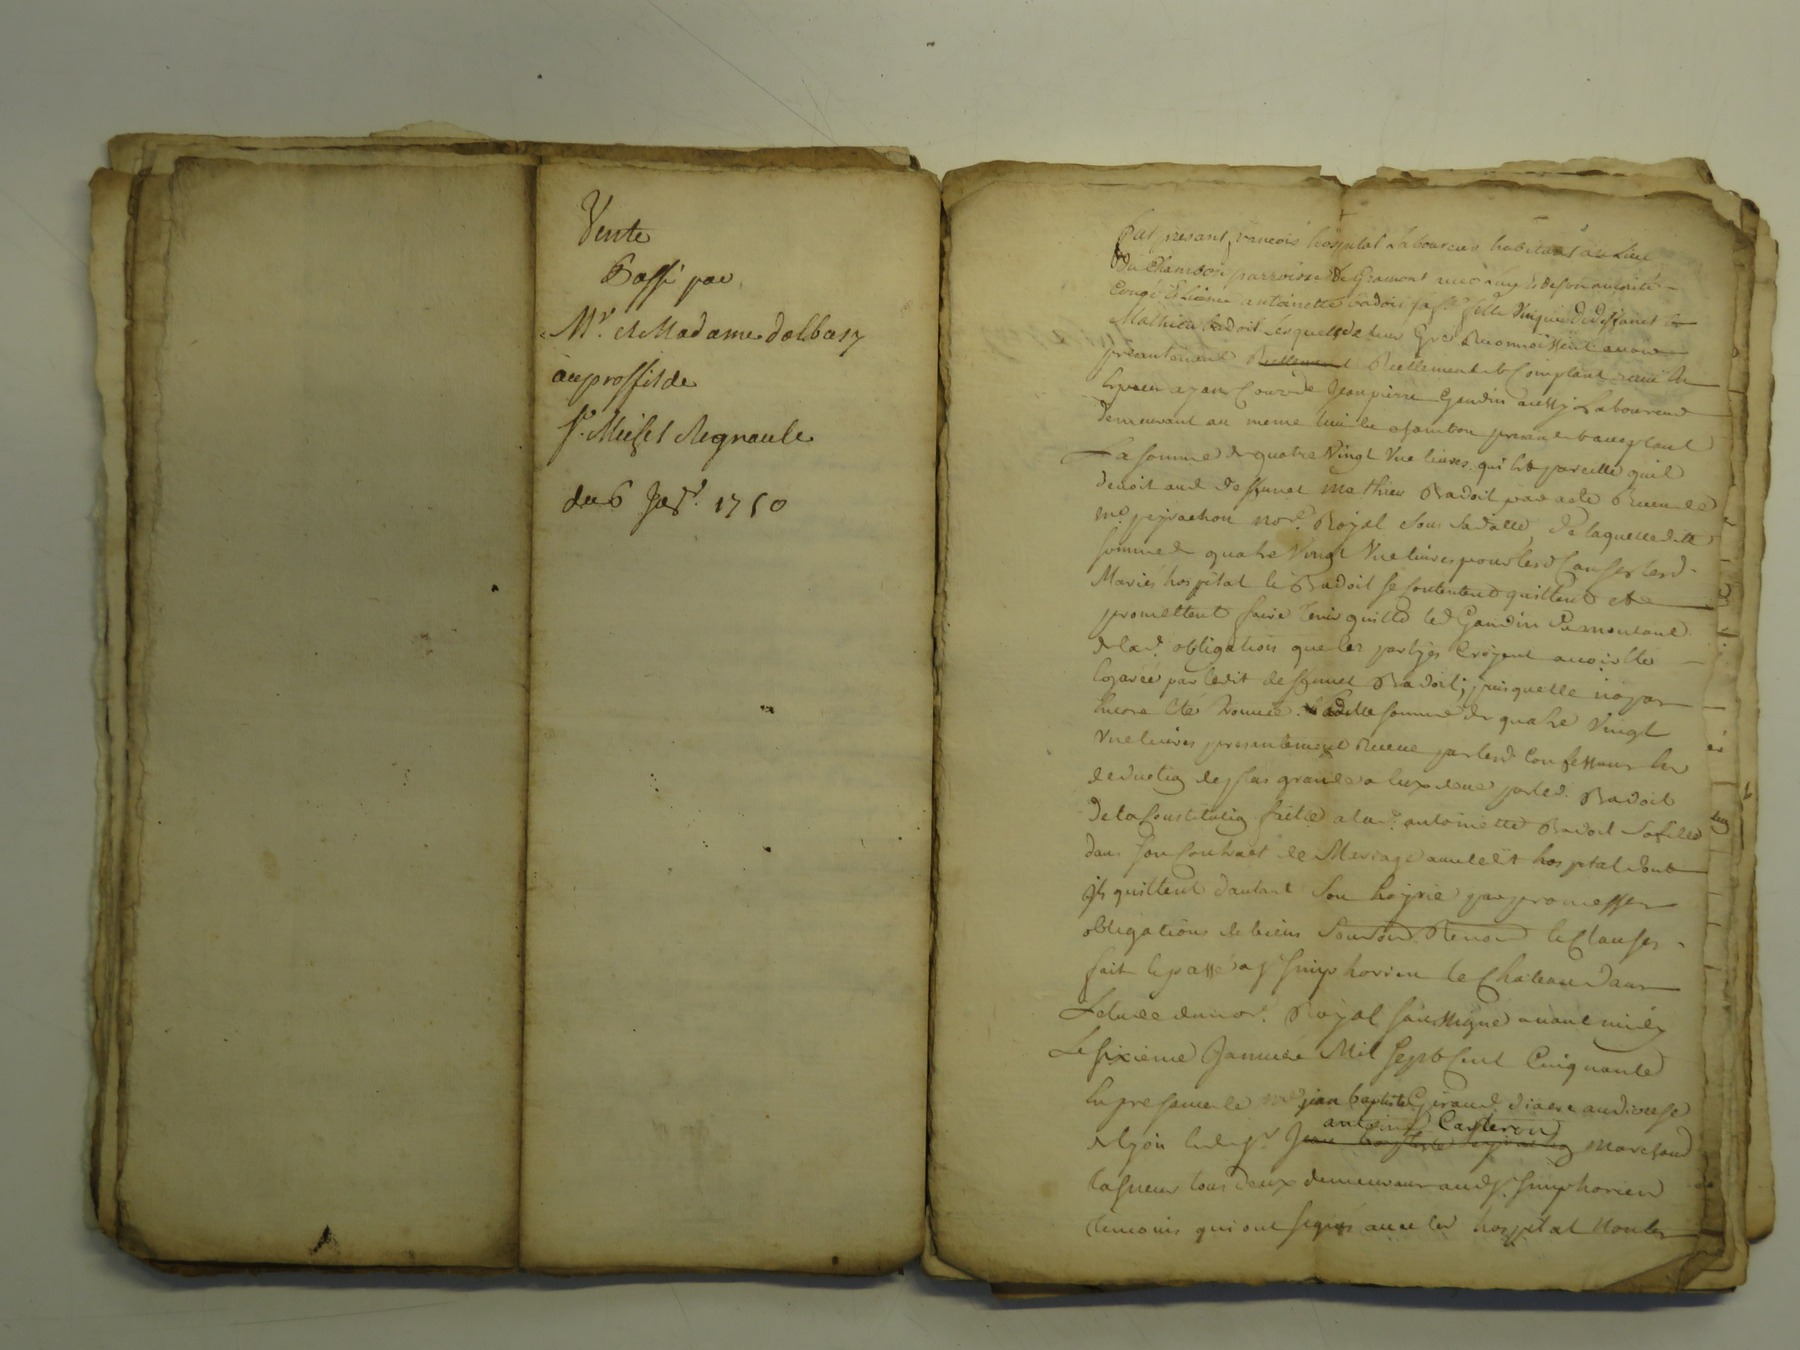 Vente
Passé par
Mr. et Madame dalbasy
au proffit de
Sr. Michel Regnault
du 6 Jer. 1750
fut présant francois hospital Laboureur habitant au Lieu
du Chambon parroisse de Gramont avec
antoinette badoit sa fe. fille de deffunct
Mathieu badoit Lesquels de leur Gré Reconnoissent avoir
présentement Reellement et Comptant receu en
ayant Cour de Jean pierre Gaudin aussy Laboureur
demeurant au meme lieu du chambon présent et acceptant
La somme de quatre Vingt Une livres qui est pareille quil
devoit aud. deffunct Mathieu Badoit par acte Receu de
me. peyrachon nore. Royal sous sa datte, de laquelle ditte
somme de quatre Vingt Une livres pour lesd. Causes lesd.
Mariés hospital et Badoit se Contentent quittent et
promettent faire tenir quitte led. Gaudin du montant
de lad. obligation que les partyes Croyent avoir été
Egarée par ledit deffunct Badoit, puisquelle na pas
Encore été trouvée. Laditte somme de quatre Vingt
Une livres presentement receue par lesd. Confessans En
deduction de plus grande a Eux deue par led. Badoit
de la Constitution faitte a lad. antoinette Badoit sa fille
dans son Contract de Mariage avec ledit hospital dont
ils quittent dautant Son hoyrie par promesses
obligations de biens Renon. et Clauses
fait et passé a St. Simphorien le Chateau dans
Letude du nore. Royal soussigné avant midy
Le sixieme Janvier Mil Sept Cent Cinquante
En presence de me. jean baptiste Giraud diacre au diocese
de lyon et de Sr. antoine Marchand
tous deux demeurant aud. St. Simphorien
temoins qui ont signés avec led. hospital Non les